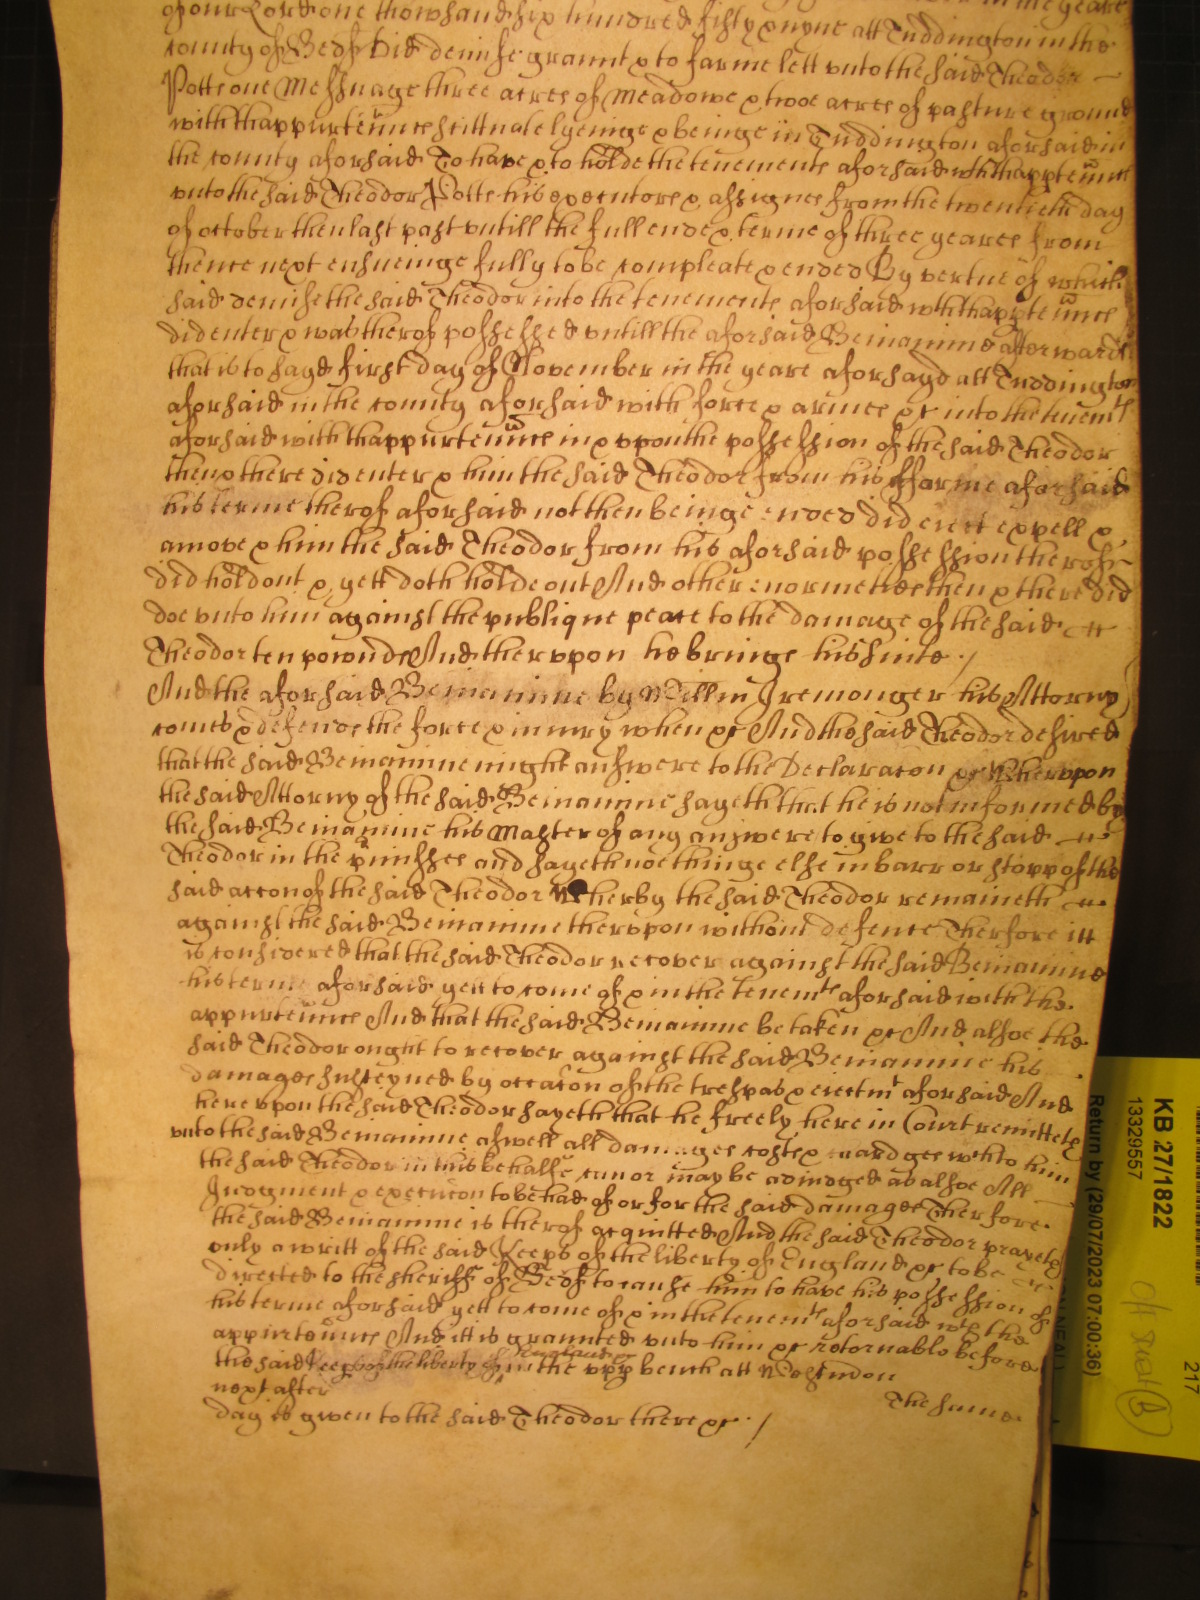 of our Lord one thowsand six hundred fifty & nyne att Tuddington in the
county of Bedf did demise graunt & to farme lett unto the said Theodor
Potts one Messuage three acres of Meadowe & twoe acres of pasture ground
with thappurtennces scittuate lyeinge & beinge in Tuddington aforsaid in
the county aforsaid To have & to holde the tenements aforsaid wth thappurtennces
unto the said Theodor Potts his executors & assignes from the twentieth day
of october then last past untill the full ende & terme of three yeares from
thence next ensueinge fully to be compleate & ended By vertue of which
said demise the said Theodor into the tenements aforsaid wth thappurtennces
did enter & was therof possessed untill the aforsaid Beniamine afterwards
that is to saye first day of November in the yeare aforsayd att Tuddington
aforsaid in the county aforsaid with force & armes &c into the tenemts
aforsaid with thappurtennces in & uppon the possession of the said Theodor
then & there did enter & him the said Theodor from his fforme aforsaid
his terme therof aforsaid not then beinge ended did eiect expell &
amove & him the said Theodor from his aforsaid possession therof
did hold out & yett doth holde out And other enormeties then & there did
doe unto him against the publique peace to the damage of the said
Theodor ten pownds And therupon he brings his suite
And the aforsaid Beniamine by Willm Iremonger his Attorny
comes & defends the force & iniury when &c And the said Theodor desired
that the said Beniamine might answere to the Declaracon &c Wherupon
the said Attorny of the said Beniamine sayeth that he is not informed by
the said Beniamine his Master of any answere to give to the said
Theodor in the p'misses and sayeth noe thinge else in barr or stopp of the
said accon of the said Theodor Wherby the said Theodor remaineth
against the said Beniamine therupon without defence Therfore itt
is considered that the said Theodor recover against the said Beniamine
his terme aforsaid yett to come of & in the tenemts aforsaid with the
appurtennces And that the said Beniamine be taken &c And alsoe the
said Theodor ought to recover against the said Beniamine his
damages susteyned by occacon of the trespas & eiectmt aforsaid And
hereupon the said Theodor sayeth that he freely here in Court remitteth
unto the said Beniamine aswell all damages costs & chardges wch to him
the said Theodor in this behalfe can or may be adiudged as alsoe All
Iudgment & execucon to be had of or for the said damages Therfore
the said Beniamine is therof acquitted And the said Theodor prayeth
only a writt of the said Keeps of the liberty of England &c to be
directed to the sheriff of Bedf to cause him to have his possession of
his terme aforsaid yett to come of & in the tenemts aforsaid wth the
appurtennces And itt is graunted unto him &c retornable before
the said Keeps of the liberty of England &c in the upp bench att Westm on
next after The same
day is given to the said Theodor there &c
KB 27/1822
13329557
Return by (29/07/2023 07:00:36)
217